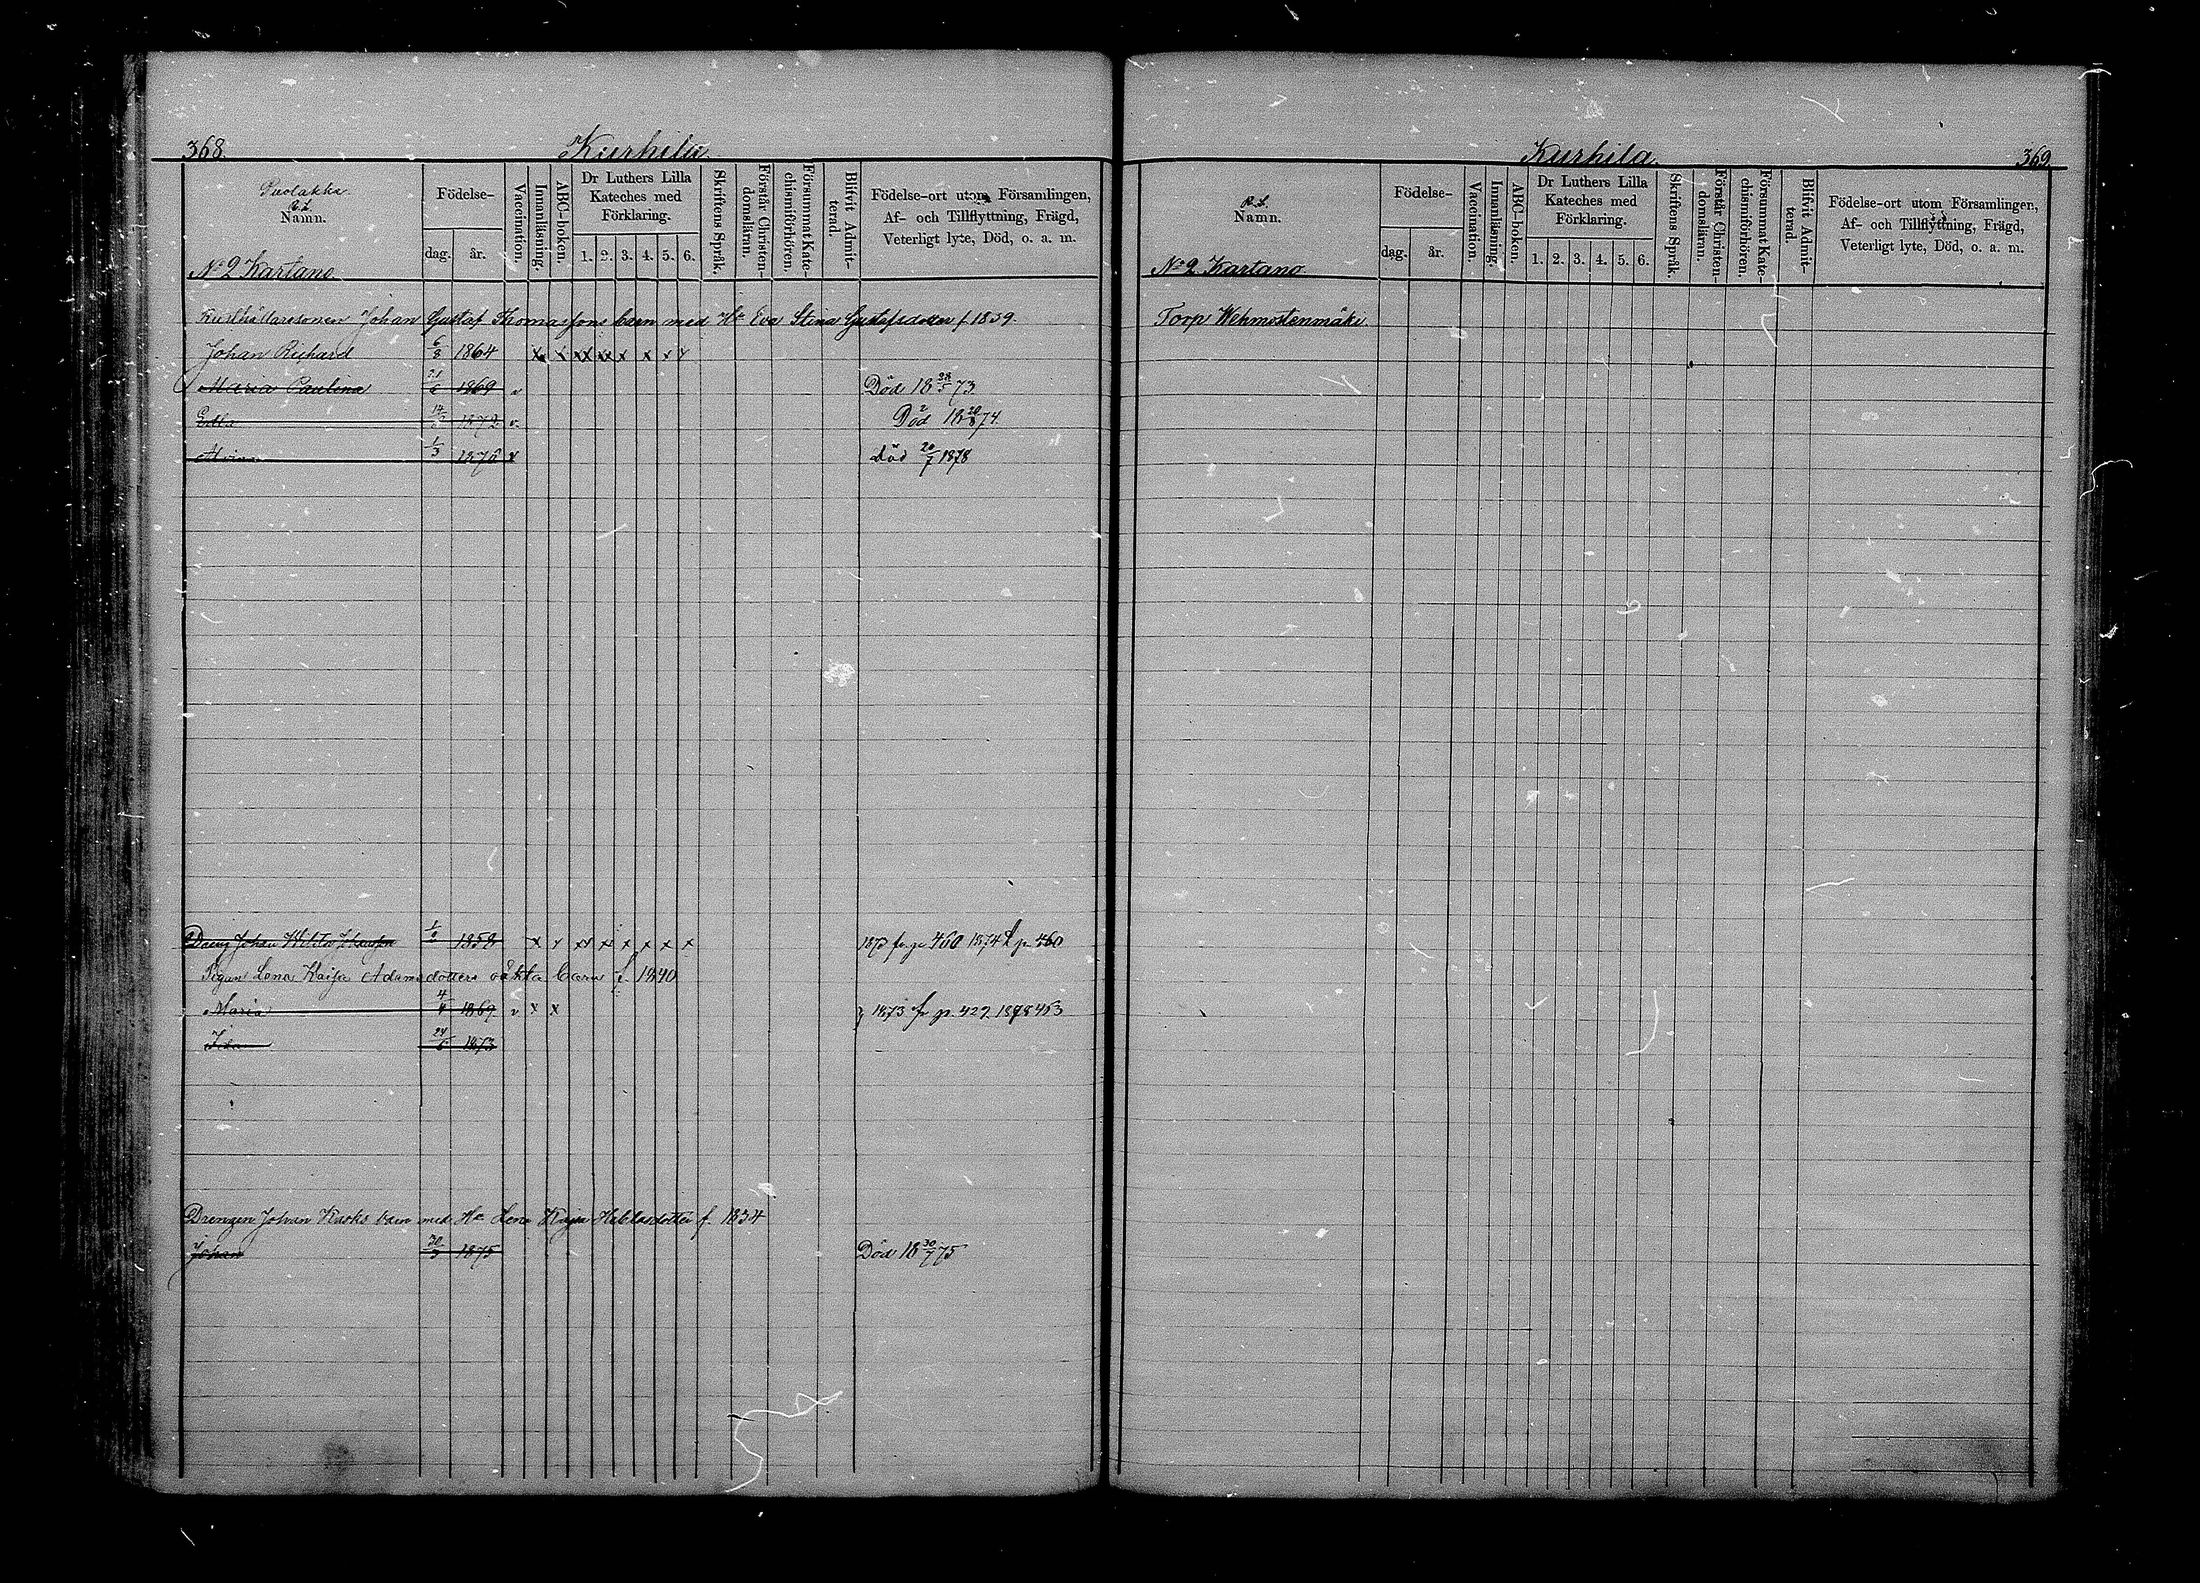 368.
Kurhila.
Puolakka
R. S.
Namn.
Födelse-
dag.
år.
Vaccination.
Innanläsning.
ABC-boken.
Dr Luthers Lilla
Kateches med
Förklaring.
1. 2. 3. 4. 5. 6.
Skriftens Språk.
Förstår Christen-
domsläran.
Försummat Kate-
chismiförhören.
Blifvit Admit-
terad.
Födelse-ort utom Församlingen,
Af- och Tillflyttning, Frägd,
Veterligt lyte, Död, o. a. m.
No 2 Kartano
Johan Gustaf Thomassons barn med Hu Eva Stina Gustafsdotter f. 1839.
Johan Richard 6/8 1864 x x xx xx x x x x
Maria Paulina 21/6 1869 v Död 18 28/5 73.
Edla 14/2 1872 v. Död 18 20/8 74.
1/3 1876 v död 20/7 1878
Dreng Johan 1/2 1858 x x xx x x x x x 1873 fr. p 460 1874 t. p. 460
Pigan Lena Kaisa Adamsdotters oäkta barn f. 1840
Maria 4/4 1869 v x x 1873 fr p. 429. 1878 453
Ida 24/5 1873
Drengen Johan Kasks barn med Hu Lena Kajsa f. 1834
Johan 30/3 1875 Död 18 30/7 75
Kurhila.
369.
R. S.
Namn.
Födelse-
dag.
år.
Vaccination.
Innanläsning.
ABC-boken.
Dr Luthers Lilla
Kateches med
Förklaring.
1. 2. 3. 4. 5. 6.
Skriftens Språk.
Förstår Christen-
domsläran.
Försummat Kate-
chismiförhören.
Blifvit Admit-
terad.
Födelse-ort utom Församlingen,
Af- och Tillflyttning, Frägd,
Veterligt lyte, Död, o. a. m.
No 2 Kartano
Torp Wehmostenmäki